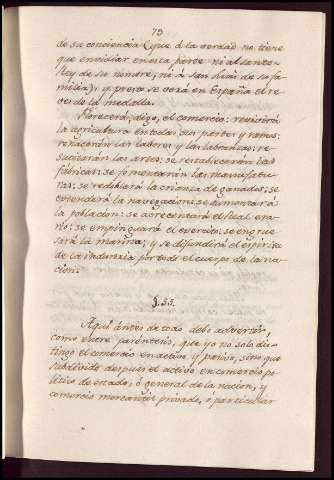 75
de su conciencia (que á la verdad no tiene
que envidiar en esta parte ni al santo
Rey de su nombre, ni á san Luis de su fa-
milia), y presto se verá en España el re-
verso de la medalla.
Florecerá, digo, el comercio: revivirá
la agricultura en todas sus partes y ramos:
renacerán las labores y las labranzas: re-
sucitarán las artes: se restablecerán las
fábricas: se fomentarán las manufactu-
ras: se redoblará la crianza de ganados: se
extenderá la navegacion: se aumentará
la poblacion: se acrecentará el Real era-
rio: se empinguará el exercito: se engro-
sará la marina; y se difundirá el espiritu
de la industria por todo el cuerpo de la na-
cion.
§. 55.
Aquí ántes de todo debo advertir,
como entre paréntesis, que yo no solo dis-
tingo el comercio en activo y pasivo, sino que
subdivido despues el activo en comercio po-
lítico de estado, ó general de la nacion, y
comercio mercantíl privado, ó particular